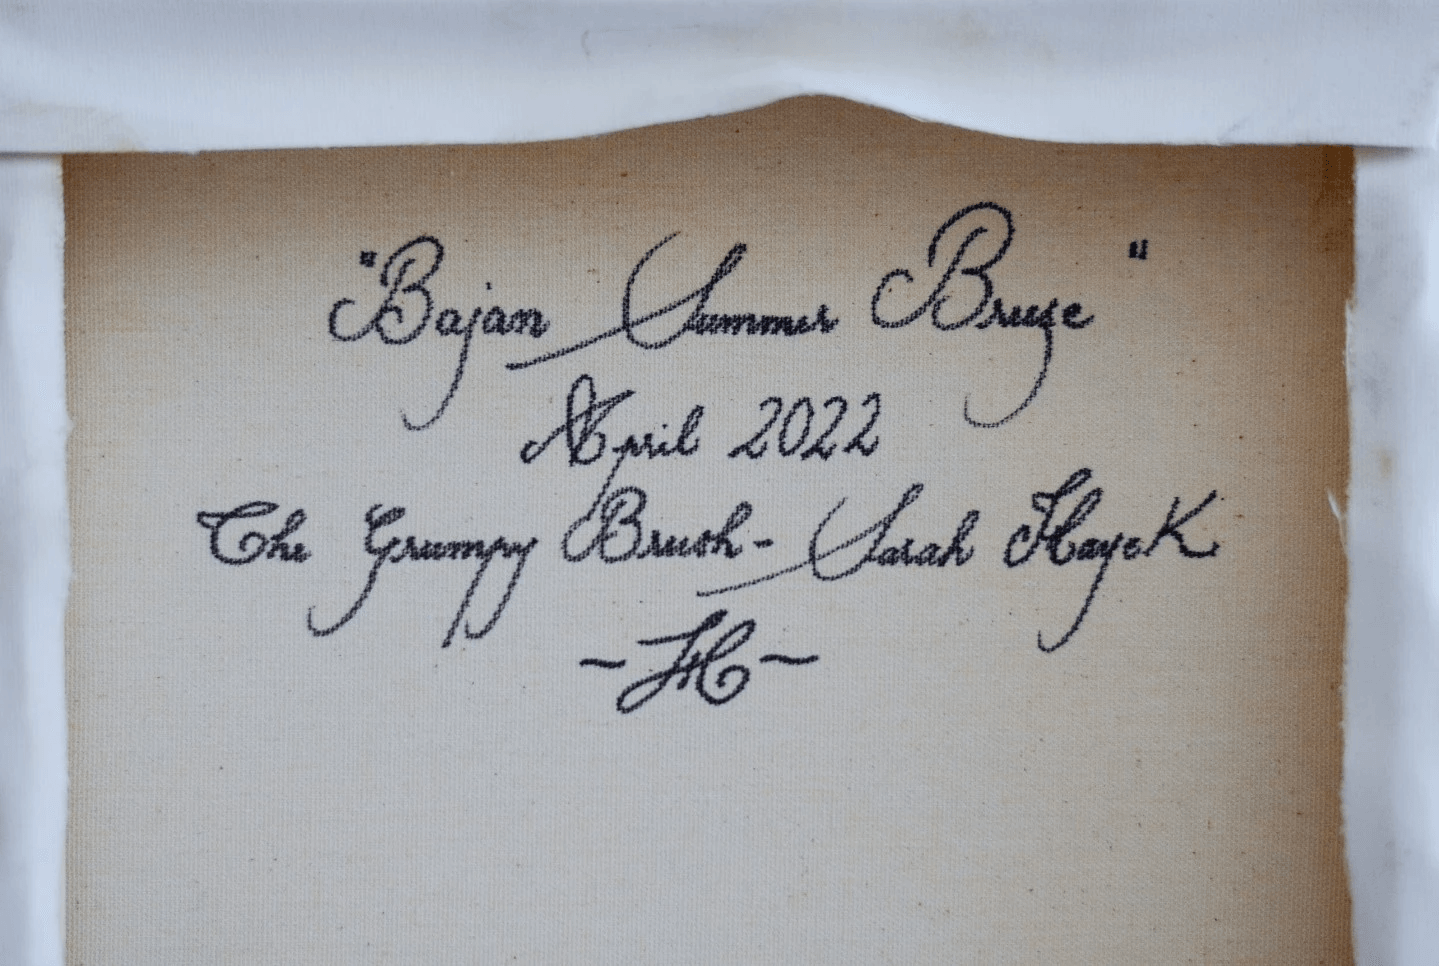 "Bajan Summer Breeze"
April 2022
The Grumpy Brush - Sarah Hayek
~SH~